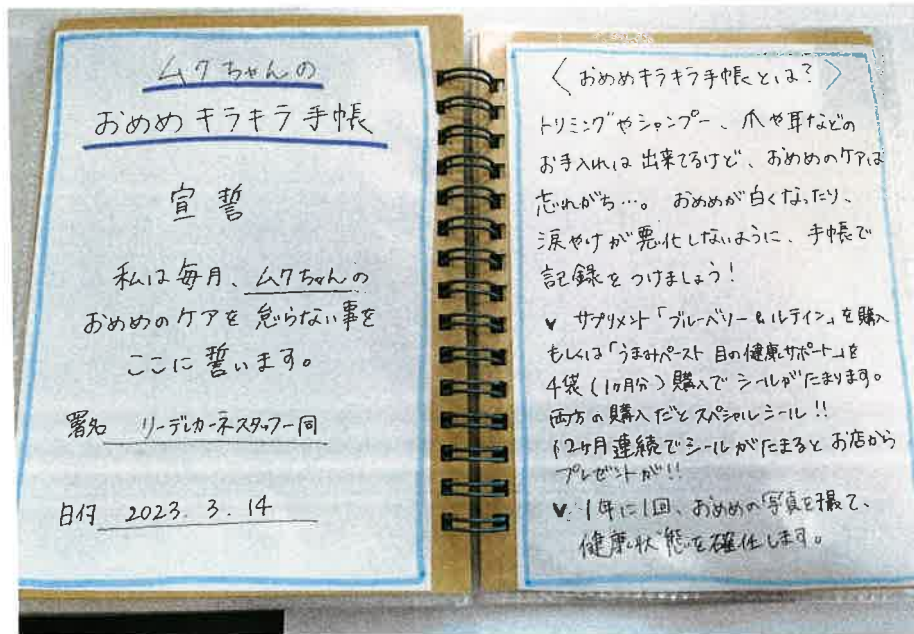 ムクちゃんの
おめめキラキラ手帳
宣誓
私は毎月、ムクちゃんの
おめめのケアを怠らない事を
ここに誓います。
署名 リーデルカーネスタッフ一同
日付 2023. 3. 14
〈おめめキラキラ手帳とは?〉
トリミングやシャンプー、爪や耳などの
お手入れは出来てるけど、おめめのケアは
忘れがち…。おめめが白くなったり、
涙やけが悪化しないように、手帳で
記録をつけましょう!
✓ サプリメント「ブルーベリー&ルテイン」を購入
もしくは「うまみペースト 目の健康サポート」を
4袋(1ヶ月分)購入でシールがたまります。
両方の購入だとスペシャルシール!!
12ヶ月連続でシールがたまるとお店から
プレゼントが!!
✓ 1年に1回、おめめの写真を撮って、
健康状態を確認します。